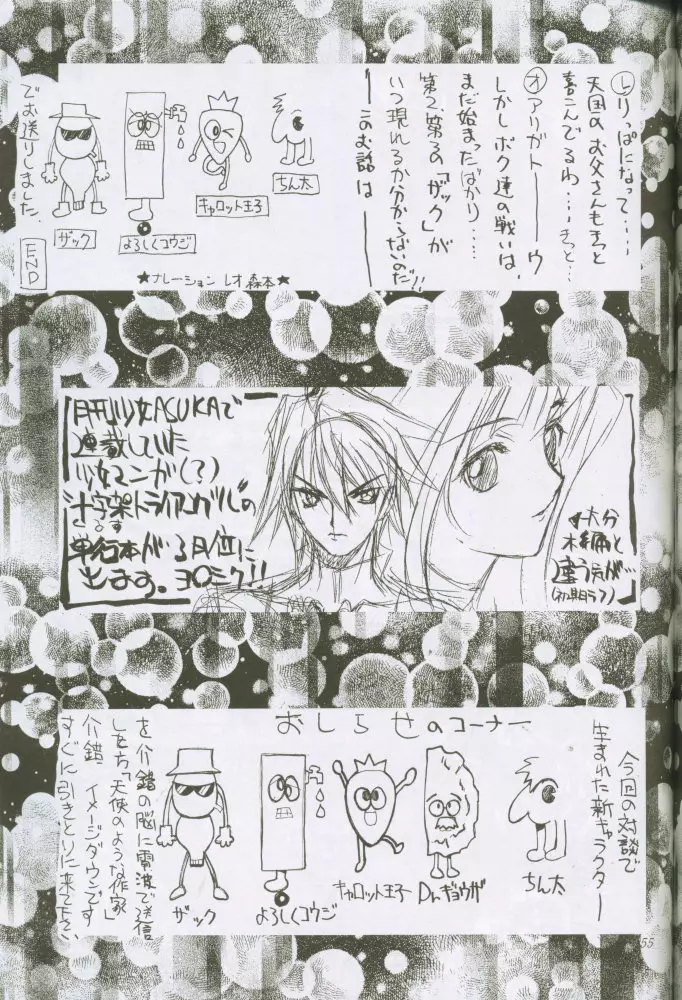 ㋹り、ぱになって……
天国のお父さんもきっと
喜こんでるわ…きっと…
㋔アリガトーーウ
しかしボク達の戦いは、
まだ始まったばかり……
第2、第3の「ザック」が
いつ現れるか分からないのだ!!
――このお話は――
ちん太
キャロット王子
よろしくコウジ
ザック
でお送りしました。
END
★ナレーション レオ森本★
月刊少女ASUKAで
連載していた
少女マンガ(?)
十字架トライアングルの
単行本が3月位に
出ます。ヨロシク!!
大分
本編と
違う気が…
(初期ラフ)
おしらせのコーナー
今回の対談で
生まれた新キャラクター
ちん太
Dr.ギョウザ
キャロット王子
よろしくコウジ
ザック
を介錯の脳に電波で送信
した方「天使のような作家
介錯」イメージダウンです
すぐに引きとりに来て下さい、
55